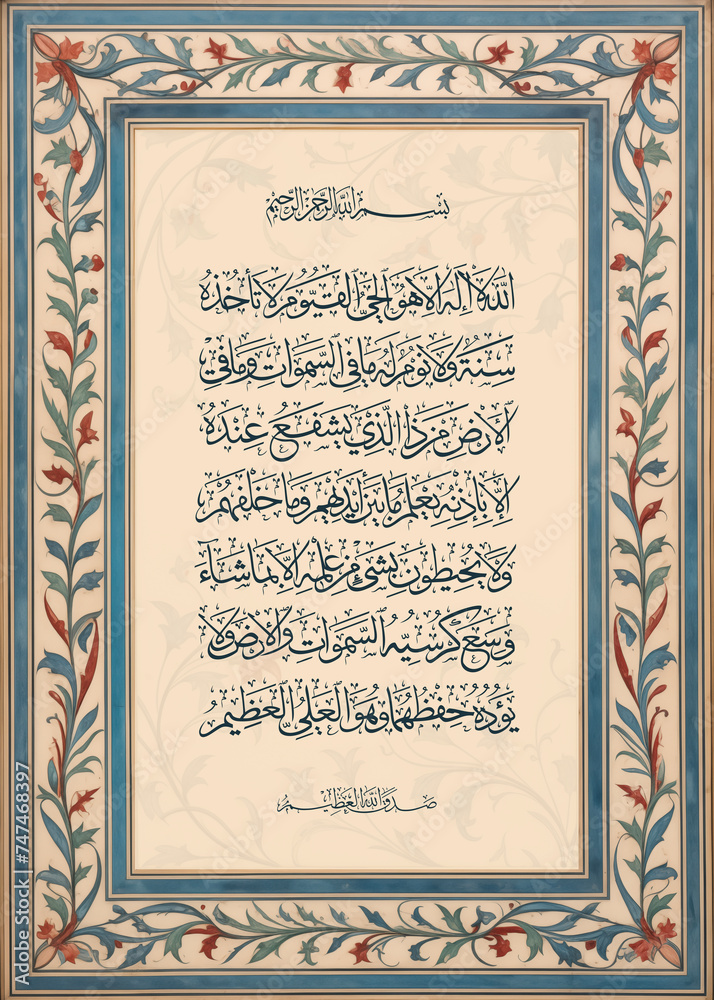 بسم الله الرحمن الرحيم
الله لا إله إلا هو الحي القيوم لا تأخذه
سنة ولا نوم له ما في السموات وما في
الأرض من ذا الذي يشفع عنده
إلا بإذنه يعلم ما بين أيديهم وما خلفهم
ولا يحيطون بشيء من علمه إلا بما شاء
وسع كرسيه السموات والأرض ولا
يؤده حفظهما وهو العلي العظيم
صدق الله العظيم
Adobe Stock | #747468397